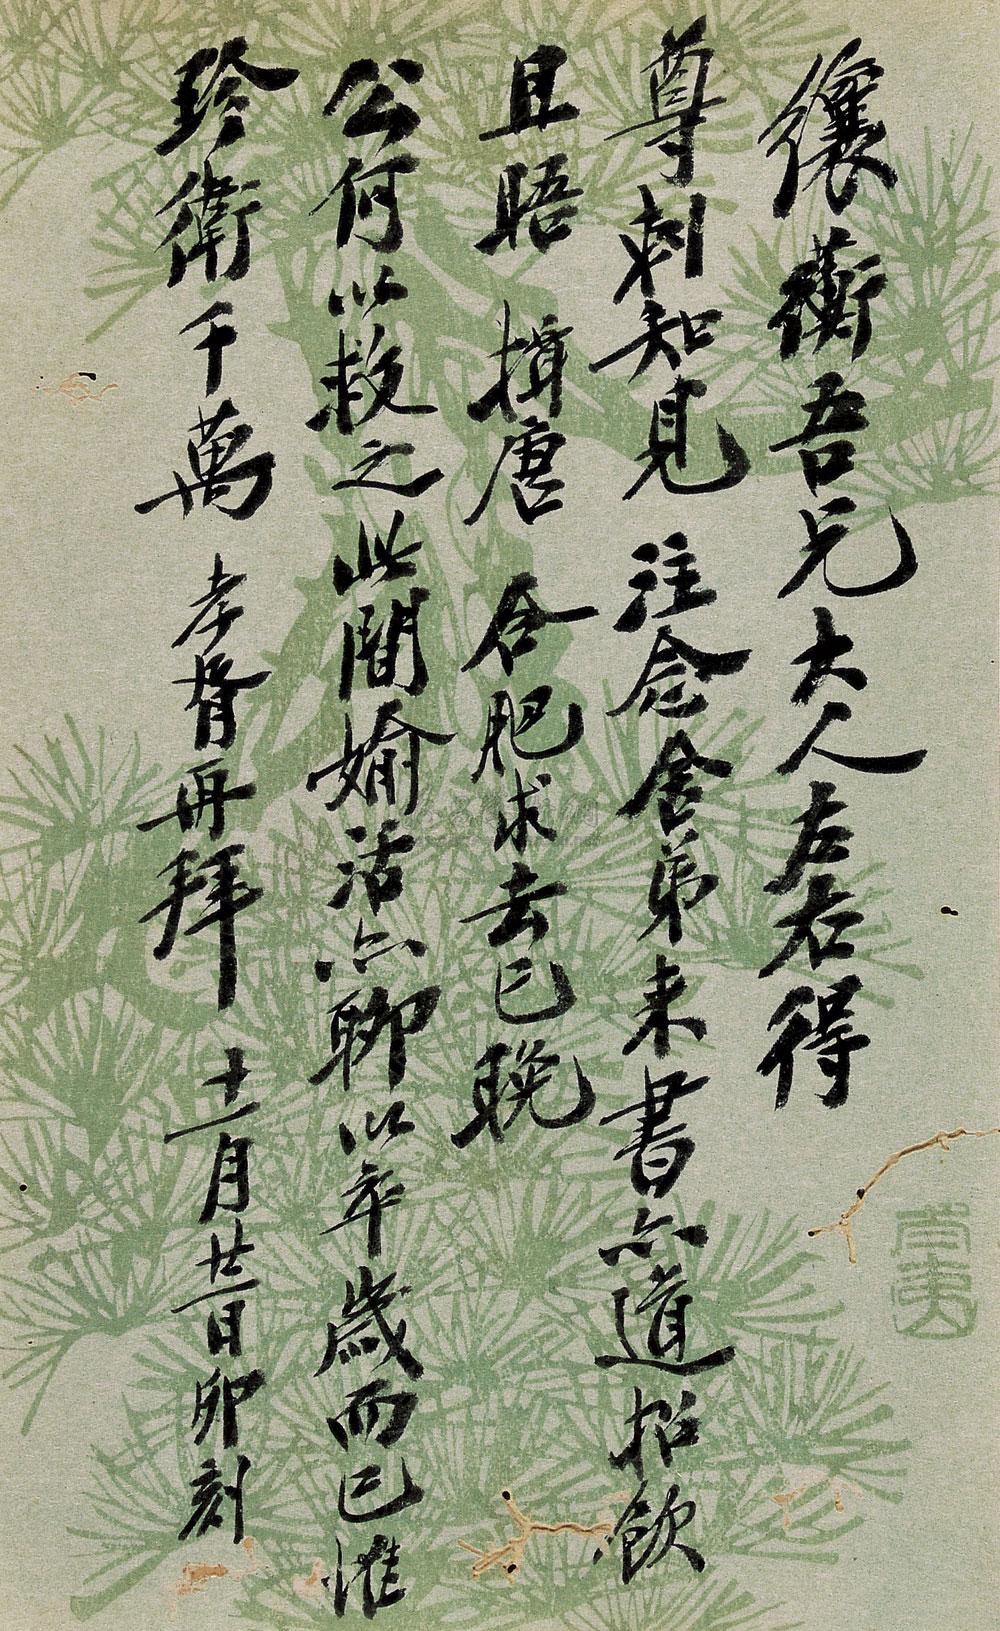 纕蘅吾兄大人左右得
尊刺知見 注念舍弟来書亦道招飲
且晤 揖唐 合肥求去已晚
公何以救之此間婾活亦聊以卒歲而已惟
珍衛千萬 孝胥再拜 十一月廿二日卯刻